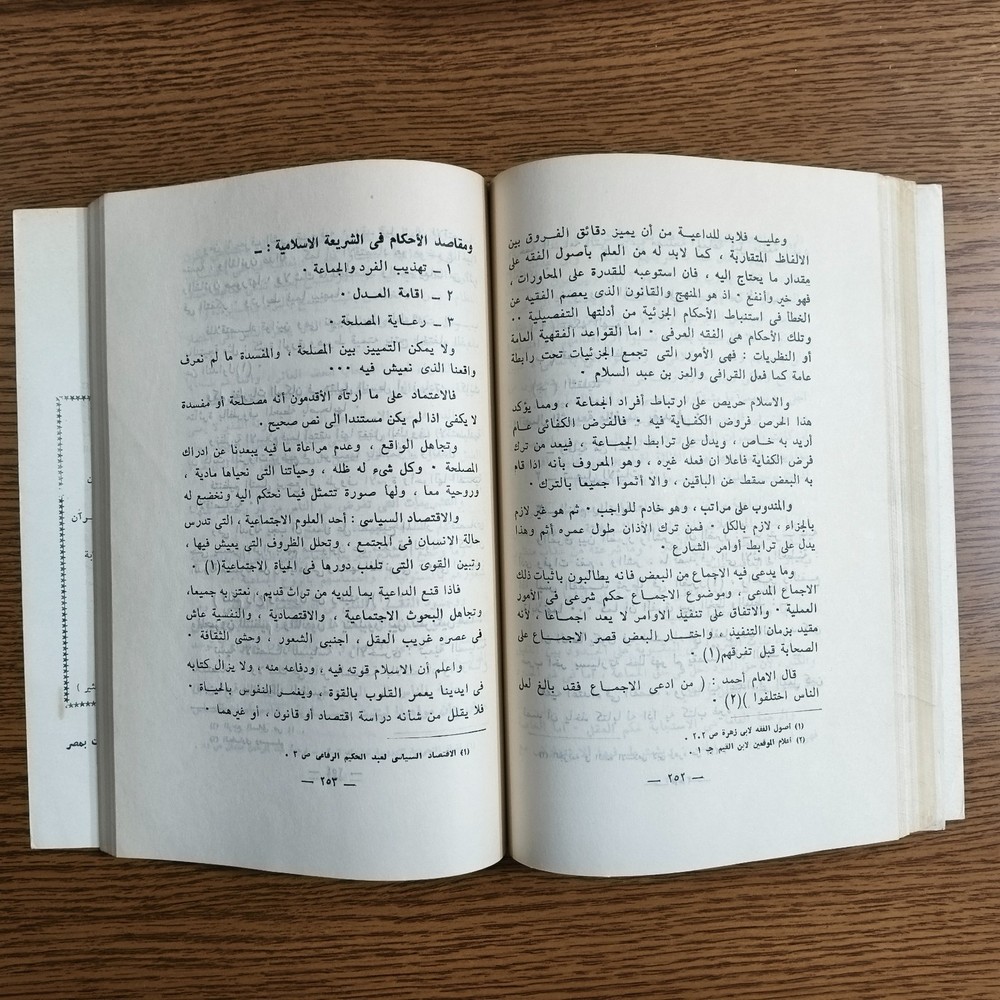 وعليه فلابد للداعية من أن يميز دقائق الفروق بين
الالفاظ المتقاربة ، كما لابد له من العلم بأصول الفقه على
مقدار ما يحتاج اليه ، فان استوعبه للقدرة على المحاورات ،
فهو خير وأنفع ٠ اذ هو المنهج والقانون الذى يعصم الفقيه عن
الخطأ فى استنباط الأحكام الجزئية من أدلتها التفصيلية ٠٠
وتلك الأحكام هى الفقه العرفى ٠ اما القواعد الفقهية العامة
أو النظريات : فهى الأمور التى تجمع الجزئيات تحت رابطة
عامة كما فعل القرافى والعز بن عبد السلام ٠
والاسلام حريص على ارتباط أفراد الجماعة ، ومما يؤكد
هذا الحرص فروض الكفاية فيه ٠ فالفرض الكفائى عام
أريد به خاص ، ويدل على ترابط الجماعة ، فيعد من ترك
فرض الكفاية فاعلا ان فعله غيره ، وهو المعروف بأنه اذا قام
به البعض سقط عن الباقين ، والا أثموا جميعا بالترك ٠
والمندوب على مراتب ، وهو خادم للواجب ٠ ثم هو غير لازم
بالجزاء ، لازم بالكل ٠ فمن ترك الأذان طول عمره أثم وهذا
يدل على ترابط أوامر الشارع ٠
وما يدعى فيه الاجماع من البعض فانه يطالبون باثبات ذلك
الاجماع المدعى ، وموضوع الاجماع حكم شرعى فى الأمور
العملية ٠ والاتفاق على تنفيذ الاوامر لا يعد اجماعا ، لأنه
مقيد بزمان التنفيذ ، واختار البعض قصر الاجماع على
الصحابة قبل تفرقهم(١) ٠
قال الامام أحمد : ( من ادعى الاجماع فقد بالغ لعل
الناس اختلفوا )(٢) ٠
(١) أصول الفقه لابى زهرة ص ٢٠٢ ٠
(٢) أعلام الموقعين لابن القيم جـ ١ ٠
— ٢٥٢ —
ومقاصد الأحكام فى الشريعة الاسلامية : ــ
١ ــ تهذيب الفرد والجماعة ٠
٢ ــ اقامة العدل ٠
٣ ــ رعاية المصلحة ٠
ولا يمكن التمييز بين المصلحة ، والمفسدة ما لم نعرف
واقعنا الذى نعيش فيه ٠٠٠
فالاعتماد على ما ارتآه الأقدمون أنه مصلحة أو مفسدة
لا يكفى اذا لم يكن مستندا الى نص صحيح ٠
وتجاهل الواقع ، وعدم مراعاة ما فيه يبعدنا عن ادراك
المصلحة ٠ وكل شىء له ظله ، وحياتنا التى نحياها مادية ،
وروحية معا ، ولها صورة تتمثل فيما نحتكم اليه ونخضع له
والاقتصاد السياسى : أحد العلوم الاجتماعية ، التى تدرس
حالة الانسان فى المجتمع ، وتحلل الظروف التى يعيش فيها ،
وتبين القوى التى تلعب دورها فى الحياة الاجتماعية(١) ٠
فاذا قنع الداعية بما لديه من تراث قديم ، نعتز به جميعا،
وتجاهل البحوث الاجتماعية ، والاقتصادية ، والنفسية عاش
فى عصره غريب العقل ، أجنبى الشعور ، وحشى الثقافة ٠
واعلم أن الاسلام قوته فيه ، ودفاعه منه ، ولا يزال كتابه
فى ايدينا يعمر القلوب بالقوة ، ويغمر النفوس بالحياة ٠
فلا يقلل من شأنه دراسة اقتصاد أو قانون ، أو غيرهما ٠
(١) الاقتصاد السياسى لعبد الحكيم الرفاعى ص ٢ ٠
— ٢٥٣ —